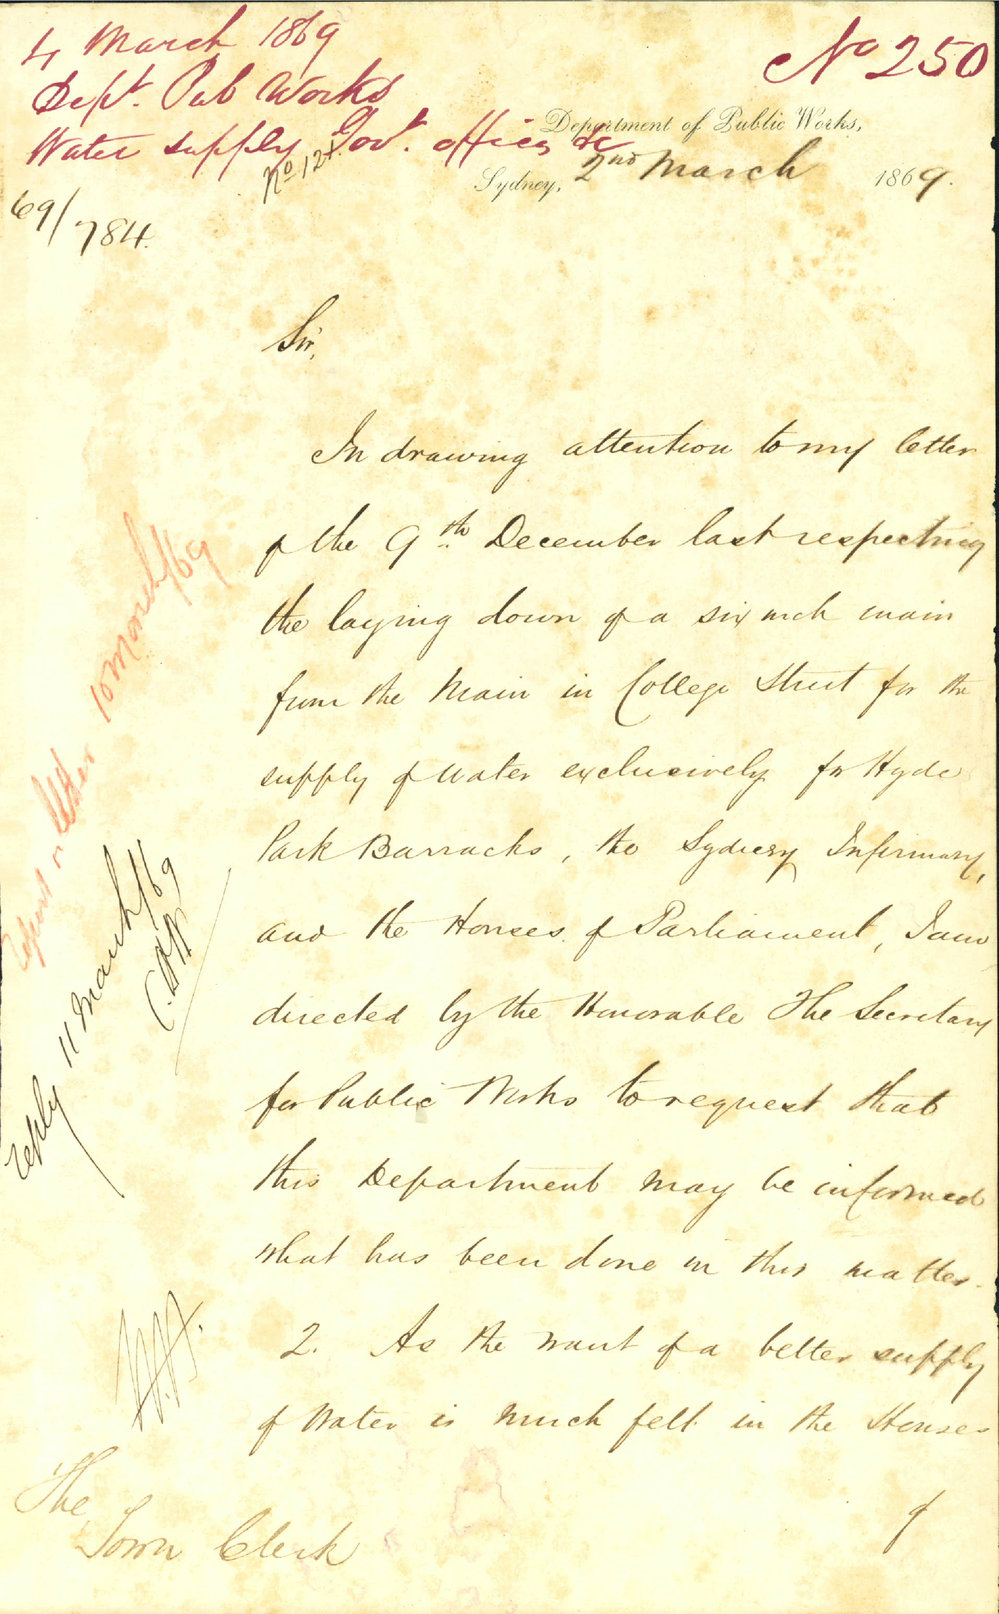 4 March 1869
Dept. Pub Works
Water supply Govt. offices &c
No 250
No 121.
69/784.
Department of Public Works,
Sydney, 2nd March 1869.
Sir,
In drawing attention to my letter
of the 9th December last respecting
the laying down of a six inch main
from the Main in College Street for the
supply of water exclusively for Hyde
Park Barracks, the Sydney Infirmary,
and the Houses of Parliament, I am
directed by the Honorable The Secretary
for Public Works to request that
this Department may be informed
what has been done in this matter.
2. As the want of a better supply
of Water is much felt in the Houses
of
The
Town Clerk
report on letter 10 March/69
reply 11 March/69